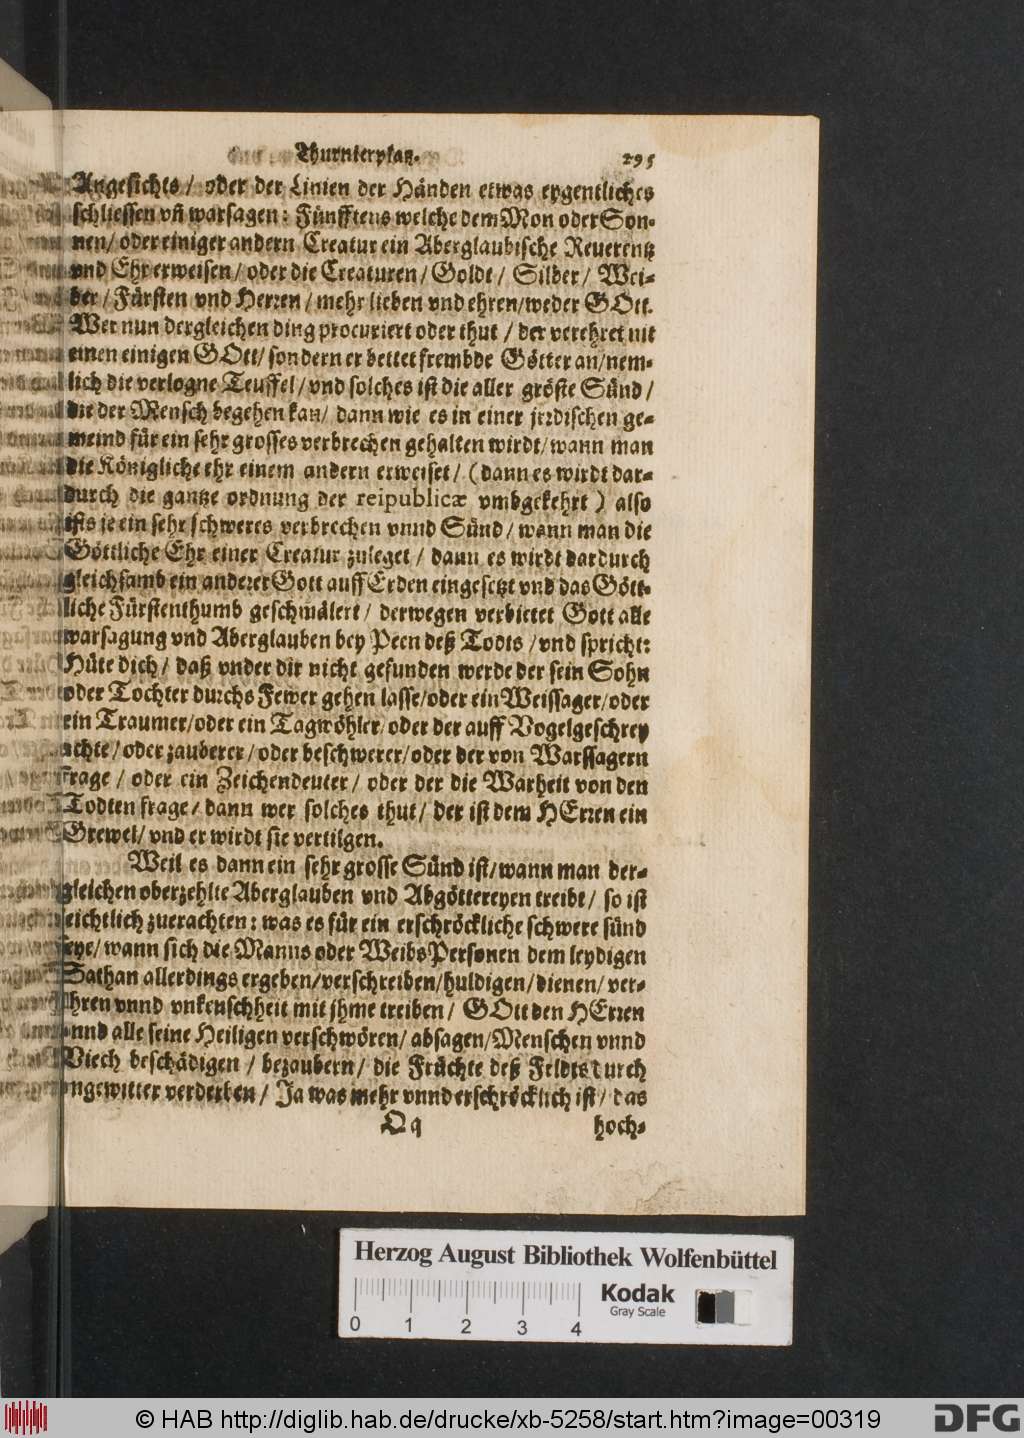 Thurnierplatz. 295
Angesichts / oder der Linien der Händen etwas eygentliches
schliessen vñ warsagen: Fünfftens welche dem Mon oder Son-
nen / oder einiger andern Creatur ein Aberglaubische Reuerentz
vnd Ehr erweisen / oder die Creaturen / Goldt / Silber / Wei-
ber / Fürsten vnd Herren / mehr lieben vnd ehren / weder GOtt.
Wer nun dergleichen ding procuriert oder thut / der verehret nit
einen einigen GOtt / sondern er bettet frembde Götter an / nem-
lich die verlogne Teuffel / vnd solches ist die aller gröste Sünd /
die der Mensch begehen kan / dann wie es in einer jrrdischen ge-
meind für ein sehr grosses verbrechen gehalten wirdt / wann man
die Königliche ehr einem andern erweiset / (dann es wirdt dar-
durch die gantze ordnung der reipublicæ vmbgekehrt) also
ists je ein sehr schweres verbrechen vnnd Sünd / wann man die
Göttliche Ehr einer Creatur zuleget / dann es wirdt dardurch
gleichsamb ein anderer Gott auff Erden eingesetzt vnd das Gött-
liche Fürstenthumb geschmälert / derwegen verbietet Gott alle
warsagung vnd Aberglauben bey Peen deß Todts / vnd spricht:
Hüte dich / daß vnder dir nicht gefunden werde der sein Sohn
oder Tochter durchs Fewer gehen lasse / oder ein Weissager / oder
ein Traumer / oder ein Tagwöhler / oder der auff Vogelgeschrey
achte / oder zauberer / oder beschwerer / oder der von Warssagern
frage / oder ein Zeichendeuter / oder der die Warheit von den
Todten frage / dann wer solches thut / der ist dem HErren ein
Grewel / vnd er wirdt sie vertilgen.
Weil es dann ein sehr grosse Sünd ist / wann man der-
gleichen oberzehlte Aberglauben vnd Abgöttereyen treibt / so ist
leichtlich zuerachten: was es für ein erschröckliche schwere sünd
seye / wann sich die Manns oder WeibsPersonen dem leydigen
Sathan allerdings ergeben / verschreiben / huldigen / dienen / ver-
ehren vnnd vnkeuschheit mit jhme treiben / GOtt den HErren
vnnd alle seine Heiligen verschwören / absagen / Menschen vnnd
Viech beschädigen / bezaubern / die Früchte deß Feldts durch
vngewitter verderben / Ja was mehr vnnd erschröcklich ist / das
Qq hoch-
Herzog August Bibliothek Wolfenbüttel
Kodak
Gray Scale
0 1 2 3 4
© HAB http://diglib.hab.de/drucke/xb-5258/start.htm?image=00319
DFG